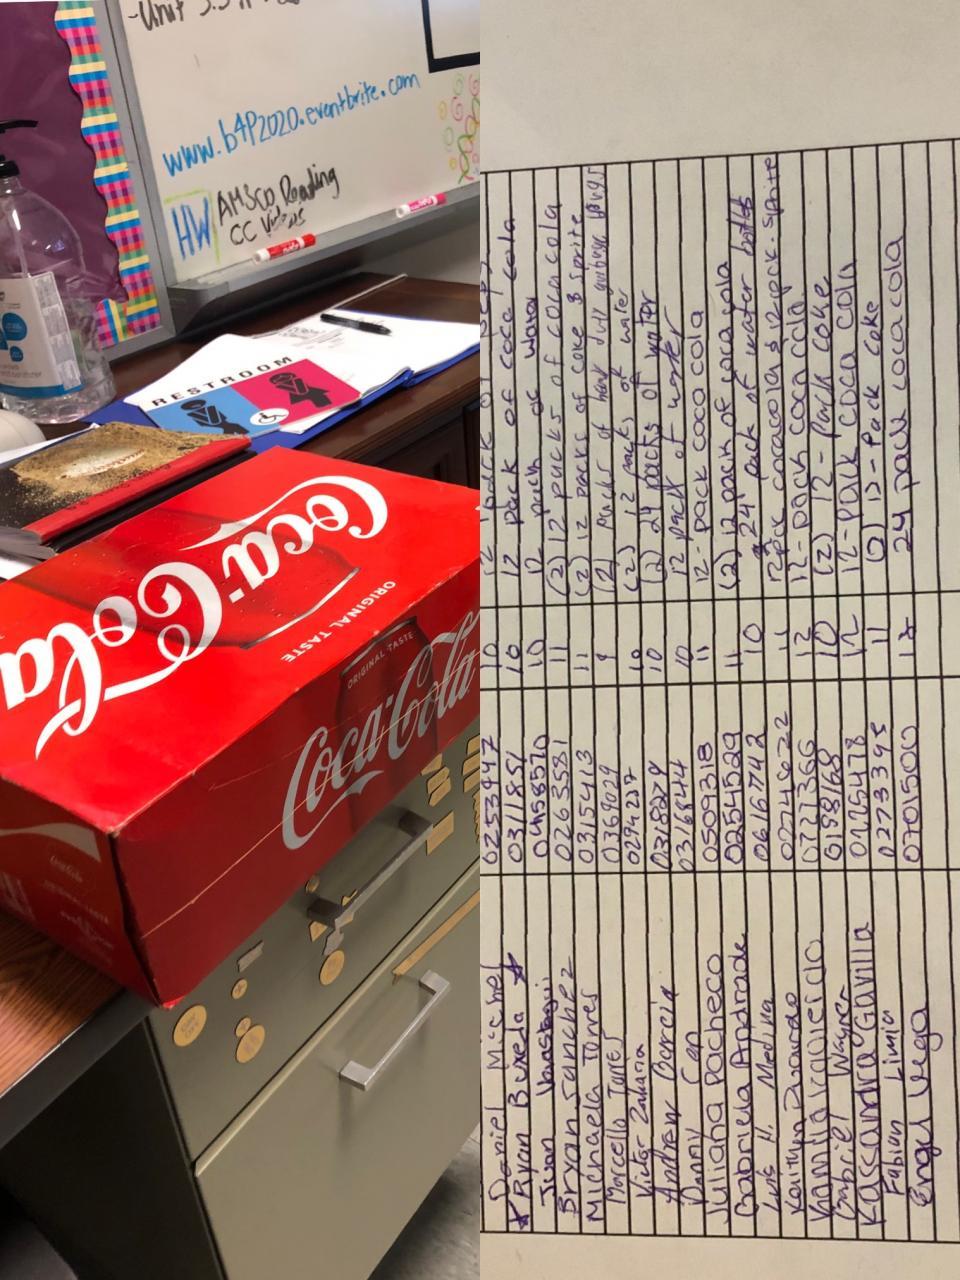 -Unit
www.b4p2020.eventbrite.com
HW
AMSCO Reading
CC Videos
RESTROOM
Coca-Cola
ORIGINAL TASTE
ORIGINAL TASTE
Coca-Cola
Daniel 0253947 10 12 pack of
Ryan Buxeda 0311851 10 12 pack of coca cola
10 12 pack of water
Bryan Sanchez 0263581 11 (2) 12 packs of coca cola
Michaela Torres 0315413 11 (2) 12 packs of coke & sprite
Marcello Torres 0369029 9 (2) packs of
Victor Zaharia 0294237 10 (2) 12 packs of water
Andrew Garcia 0318279 10 (2) 24 packs of water
Danny Cep 0316844 10 12 pack of water
Juliana Pacheco 0509318 11 12-pack coca cola
Gabriela Andrade 0254529 11 (2) 12 pack of coca cola
Luis H. Medina 0616742 10 24 pack of water bottles
0274622 11 12pk cocacola & 12pack. sprite
0727366 12 12-pack coca cola
Gabriel Wayner 0198168 10 (2) 12-Pack coke
Kassandra Gavilla 12 12-pack coca cola
Fabian Limia 0273395 11 12-Pack Coke
Engel Vega 0701500 12 24 pack cocacola